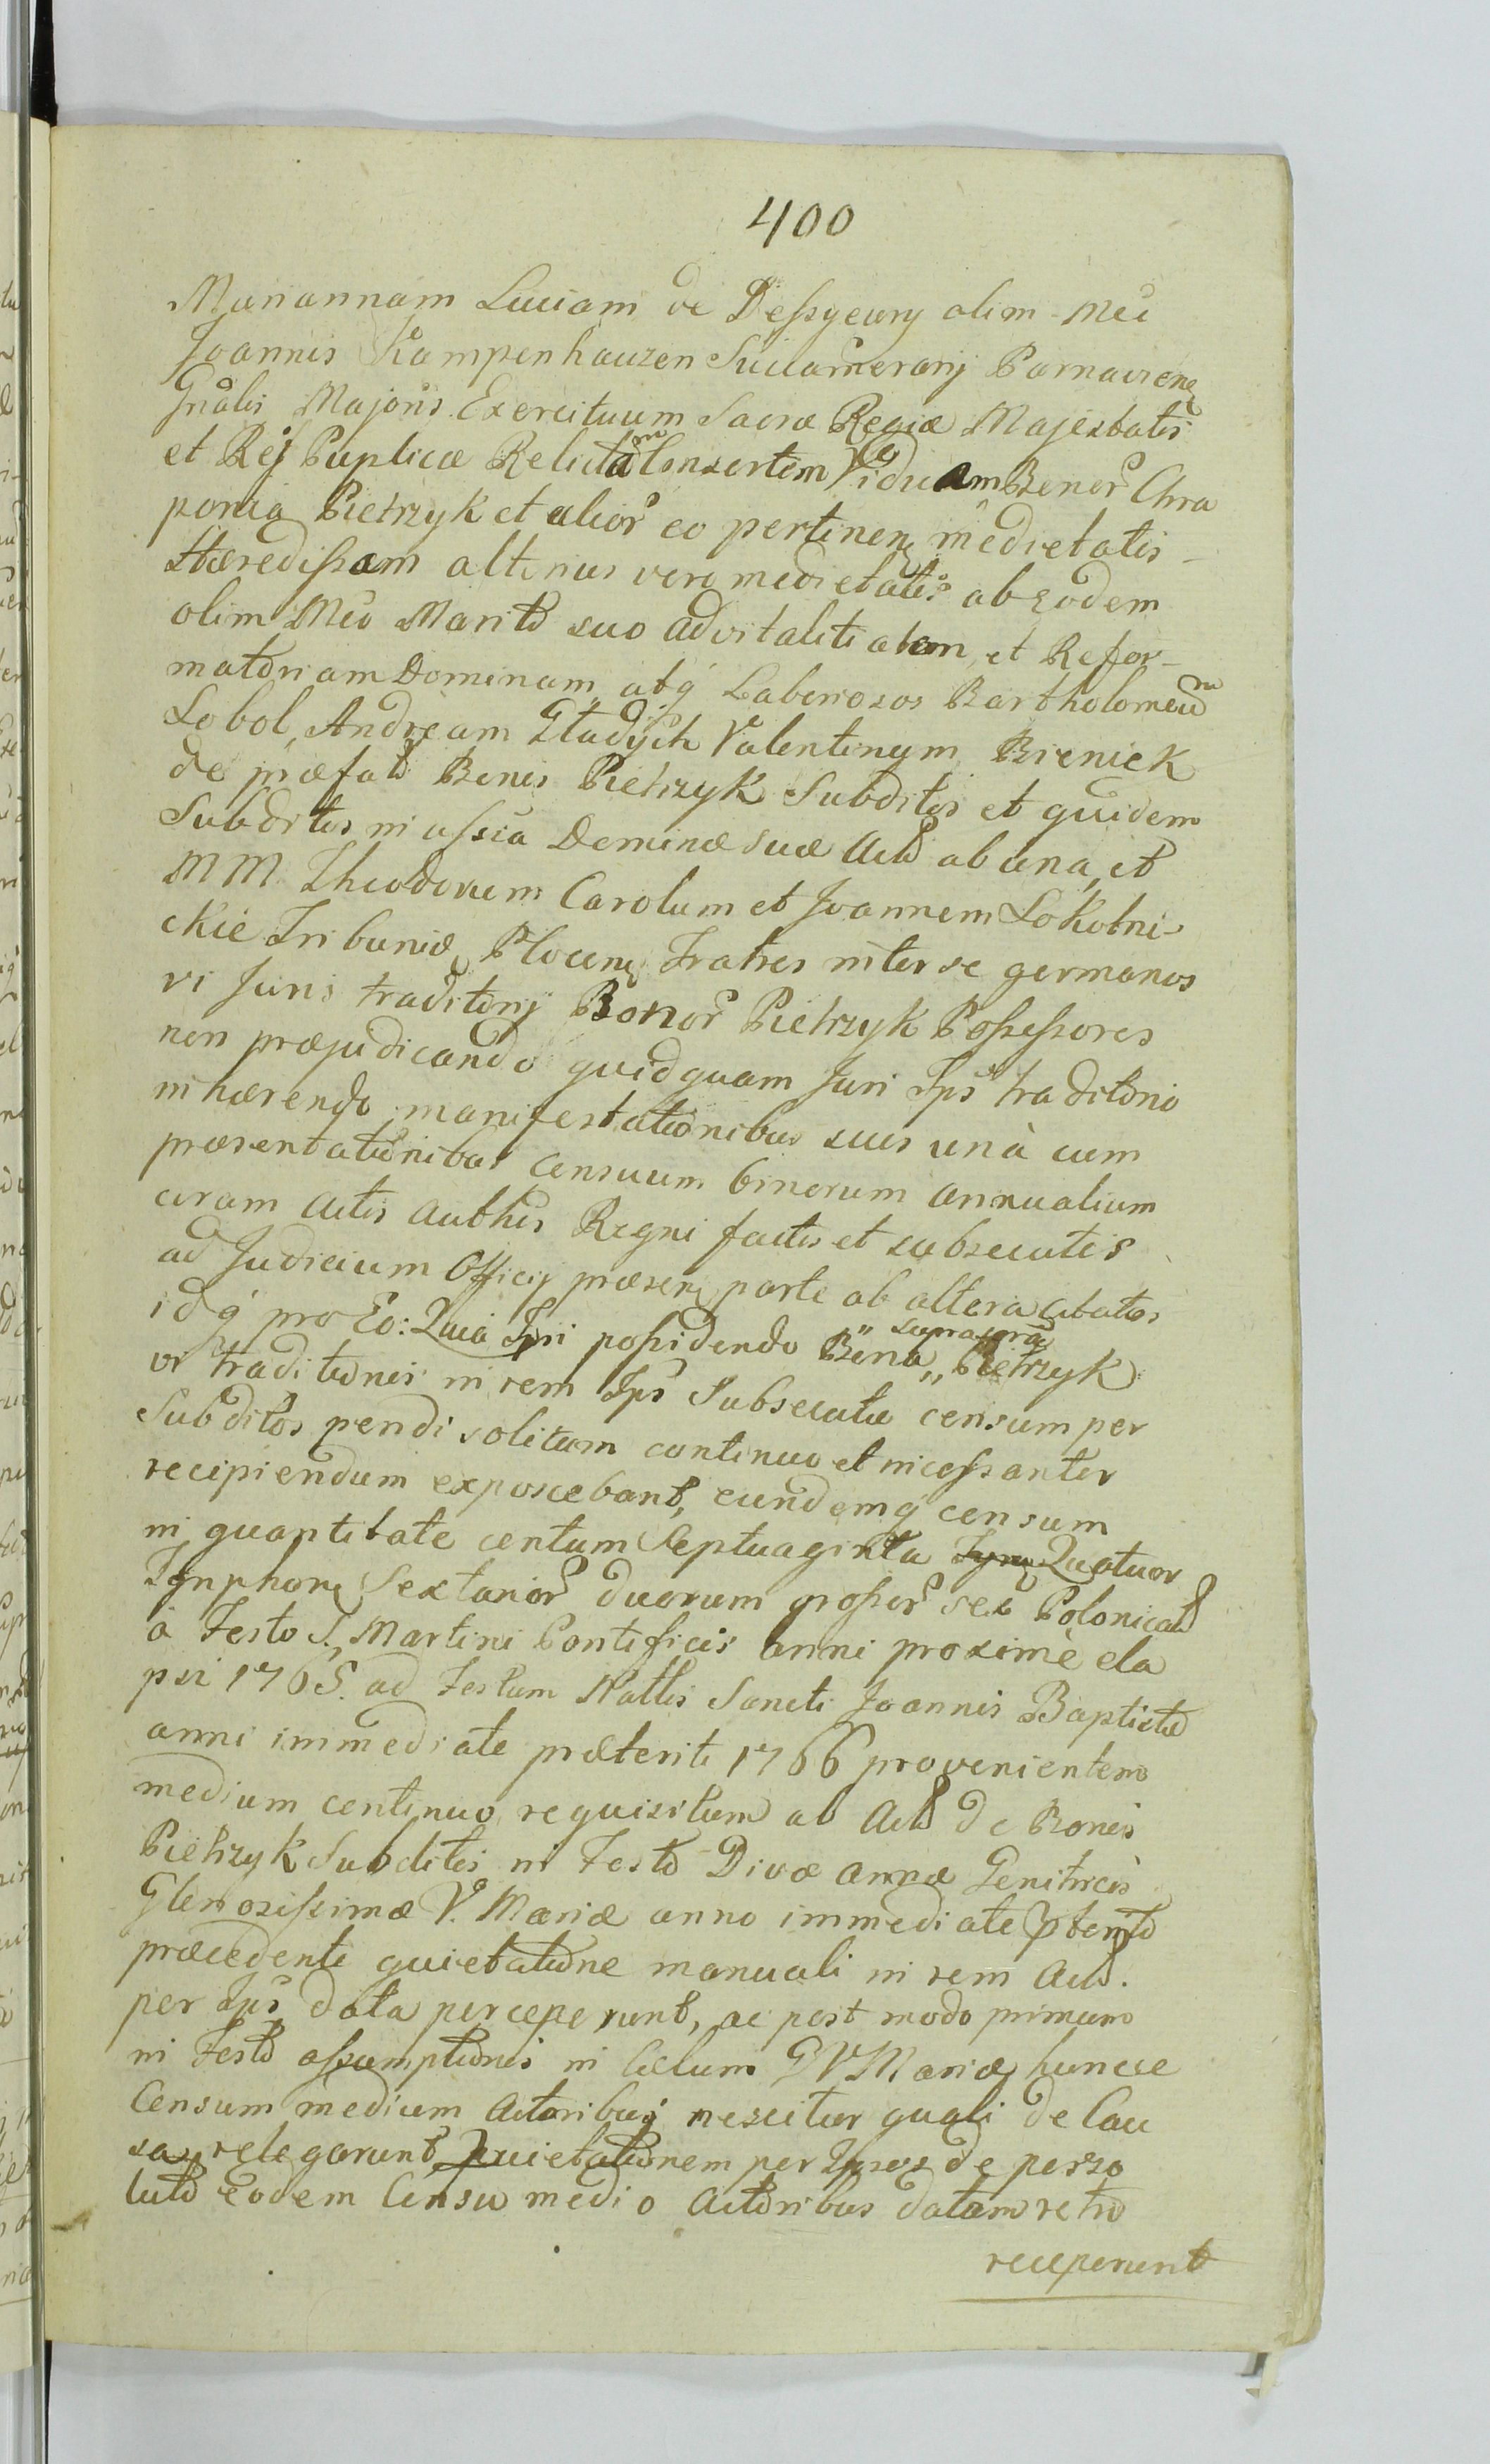 400
Mariannam Luciam de Dessyeury olim Mci
Joannis Kampenhauzen Succamerarij Parnavien
Gnalis Majoris Exercituum Sacræ Regiæ Majestatis
et Reij Puplicæ Relictam Consortem Viduam Bonor Chra
ponia Pietrzyk et alior eo pertinen medietatis
Hæredissam alterius vero medietatis ab Eodem
olim Mco Marito suo advitalitiatam et Refor-
matoriam Dominam atq Laboriosos Bartholomeum
Lobol, Andream Gładysch Valentinum Bieniek
de præfatis Bonis Pietrzyk Subditos et quidem
Subditos in assia Dominæ suæ Acto ab una, et
MM. Theodorum Carolum et Joannem Lokotni-
ckie Tribunid Plocen Fratres inter se germanos
vi Juris traditorij Bonor Pietrzyk Possessores
non præjudicando quidquam Juri Ips traditorio
inhærendo manifestationibus suis unà cum
præsentationibus censuum binorum annualium
coram Actis Authis Regni factis et subsecutis
ad Judicium Officij præsen parte ab altera citatos
idq pro Eo: Quia Ipsi possidendo Bona „ supra „ Pietrzyk
vi traditionis in rem Ips Subsecutæ censum per
Subditos pendi solitum continuo et incessanter
recipiendum exposcebant, eundemq censum
in quantitate centum Septuaginta Quatuor
Tynphon Sextarior duorum grossor sex Polonical
a Festo S. Martini Pontificis anni proximè ela
psi 1765. ad Festum Natlis Sancti Joannis Baptistæ
anni immediate præteriti 1766 provenientem
medium continuo requisitum ab Acto de Bonis
Pietrzyk Subditis in Festo Divæ Annæ Genitricis
Gloriosissimæ V. Mariæ anno immediate pterito
præcedente quietatione manuali in rem Act.
per Ips data perceperunt, ac post modo primum
in Festo assumptionis in Cælum G V Mariæ huncce
Censum medium Actoribus nescitur quali de Cau
sa relegarunt, quietationem per Ipsos de perso
luto Eodem Censu medio Actoribus datam retro
receperunt